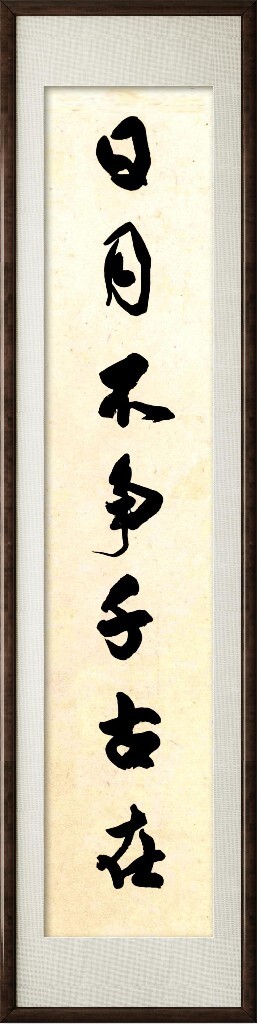 日月不争千古在